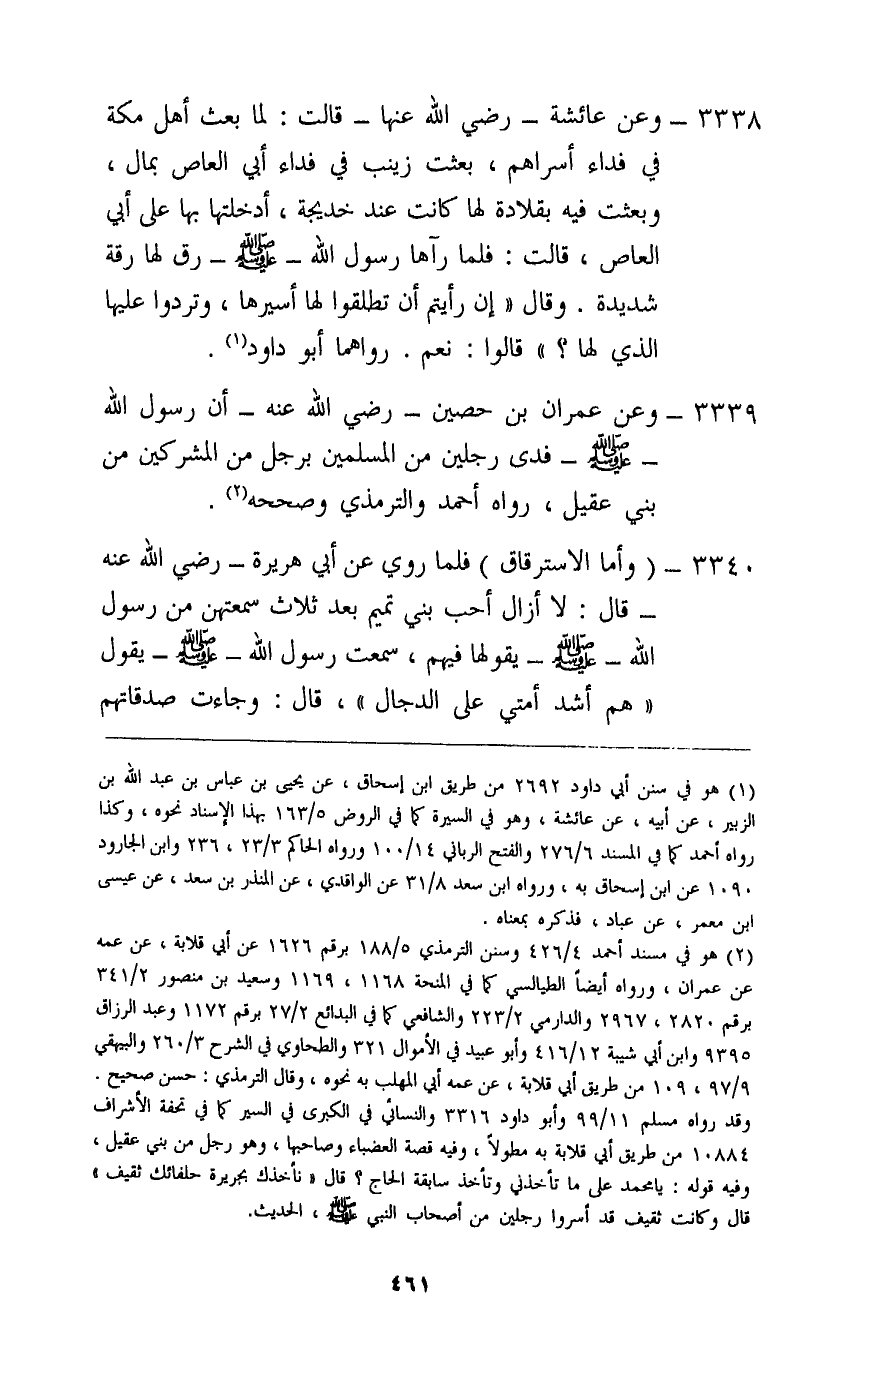 ٣٣٣٨ ـ وعن عائشة ـ رضي الله عنها ـ قالت : لما بعث أهل مكة
في فداء أسراهم ، بعثت زينب في فداء أبي العاص بمال ،
وبعثت فيه بقلادة لها كانت عند خديجة ، أدخلتها بها على أبي
العاص ، قالت : فلما رآها رسول الله ـ ﷺ ـ رق لها رقة
شديدة . وقال « إن رأيتم أن تطلقوا لها أسيرها ، وتردوا عليها
الذي لها ؟ » قالوا : نعم . رواهما أبو داود(١) .
٣٣٣٩ ـ وعن عمران بن حصين ـ رضي الله عنه ـ أن رسول الله
ـ ﷺ ـ فدى رجلين من المسلمين برجل من المشركين من
بني عقيل ، رواه أحمد والترمذي وصححه(٢) .
٣٣٤٠ ـ ( وأما الاسترقاق ) فلما روي عن أبي هريرة ـ رضي الله عنه
ـ قال : لا أزال أحب بني تميم بعد ثلاث سمعتهن من رسول
الله ـ ﷺ ـ يقولها فيهم ، سمعت رسول الله ـ ﷺ ـ يقول
« هم أشد أمتي على الدجال » ، قال : وجاءت صدقاتهم
(١) هو في سنن أبي داود ٢٦٩٢ من طريق ابن إسحاق ، عن يحيى بن عباس بن عبد الله بن
الزبير ، عن أبيه ، عن عائشة ، وهو في السيرة كما في الروض ١٦٣/٥ بهذا الإسناد نحوه ، وكذا
رواه أحمد كما في المسند ٢٧٦/٦ والفتح الرباني ١٠٠/١٤ ورواه الحاكم ٢٣/٣ ، ٢٣٦ وابن الجارود
١٠٩٠ عن ابن إسحاق به ، ورواه ابن سعد ٣١/٨ عن الواقدي ، عن المنذر بن سعد ، عن عيسى
ابن معمر ، عن عباد ، فذكره بمعناه .
(٢) هو في مسند أحمد ٤٢٦/٤ وسنن الترمذي ١٨٨/٥ برقم ١٦٢٦ عن أبي قلابة ، عن عمه
عن عمران ، ورواه أيضاً الطيالسي كما في المنحة ١١٦٨ ، ١١٦٩ وسعيد بن منصور ٣٤١/٢
برقم ٢٨٢٠ ، ٢٩٦٧ والدارمي ٢٢٣/٢ والشافعي كما في البدائع ٢٧/٢ برقم ١١٧٢ وعبد الرزاق
٩٣٩٥ وابن أبي شيبة ٤١٦/١٢ وأبو عبيد في الأموال ٣٢١ والطحاوي في الشرح ٢٦٠/٣ والبيهقي
٩٧/٩ ، ١٠٩ من طريق أبي قلابة ، عن عمه أبي المهلب به نحوه ، وقال الترمذي : حسن صحيح .
وقد رواه مسلم ٩٩/١١ وأبو داود ٣٣١٦ والنسائي في الكبرى في السير كما في تحفة الأشراف
١٠٨٨٤ من طريق أبي قلابة به مطولاً ، وفيه قصة العضباء وصاحبها ، وهو رجل من بني عقيل ،
وفيه قوله : يامحمد على ما تأخذني وتأخذ سابقة الحاج ؟ قال « نأخذك بجريرة حلفائك ثقيف »
قال وكانت ثقيف قد أسروا رجلين من أصحاب النبي ﷺ ، الحديث.
٤٦١